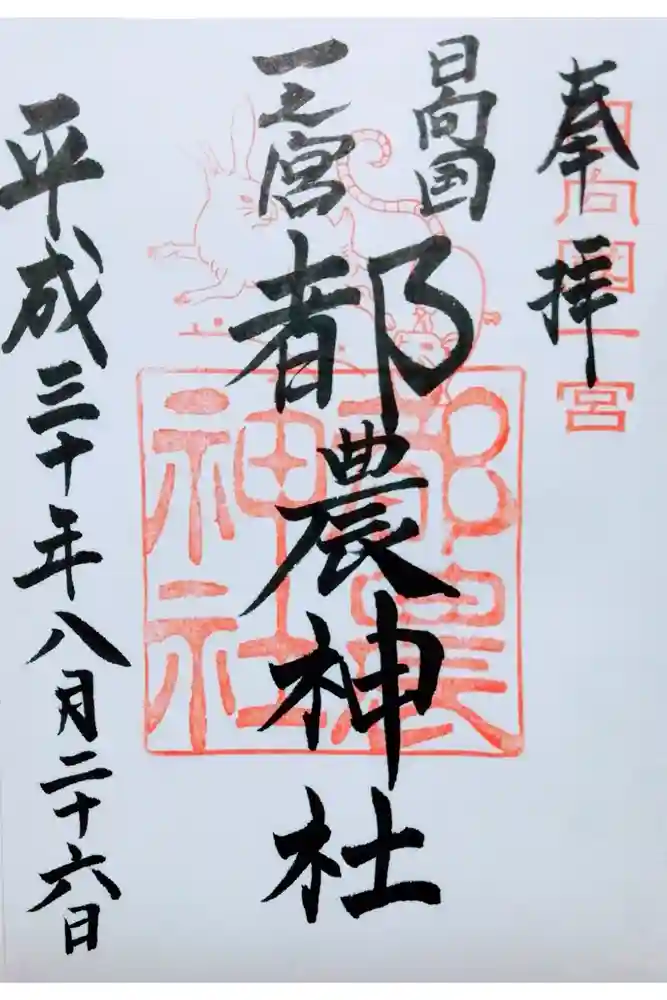 奉拝
日向國一宮
日向国
一之宮
都農神社
都農神社
平成三十年八月二十六日